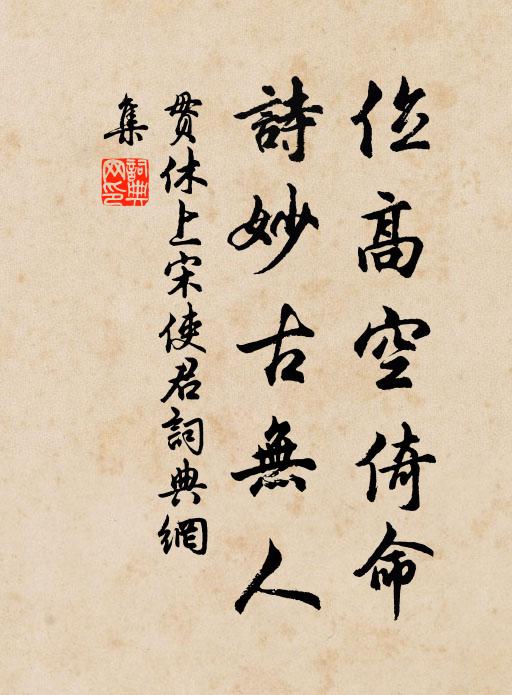 位高空倚命
詩妙古無人
貫休上宋使君詞典網
集
詞典網印